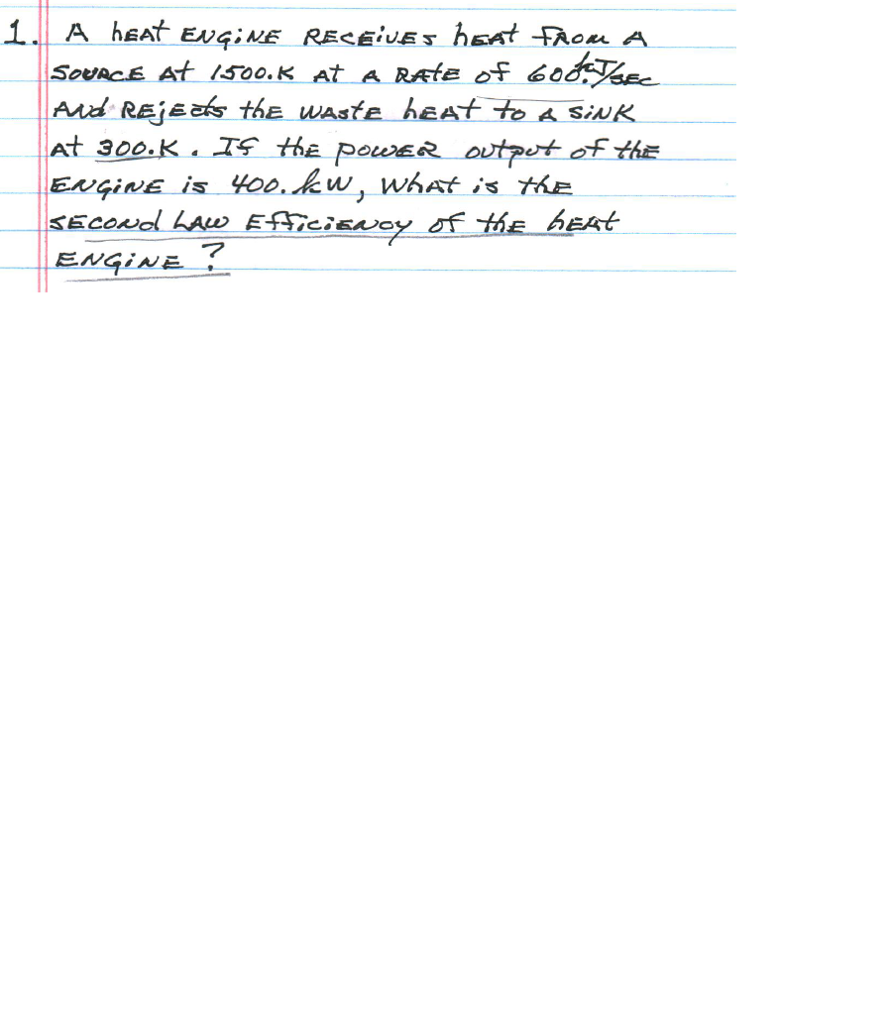 1. A heat engine receives heat from a
source at 1500.K at a rate of 600.kJ/sec
and rejects the waste heat to a sink
at 300.K. If the power output of the
engine is 400.kW, what is the
second law efficiency of the heat
engine?